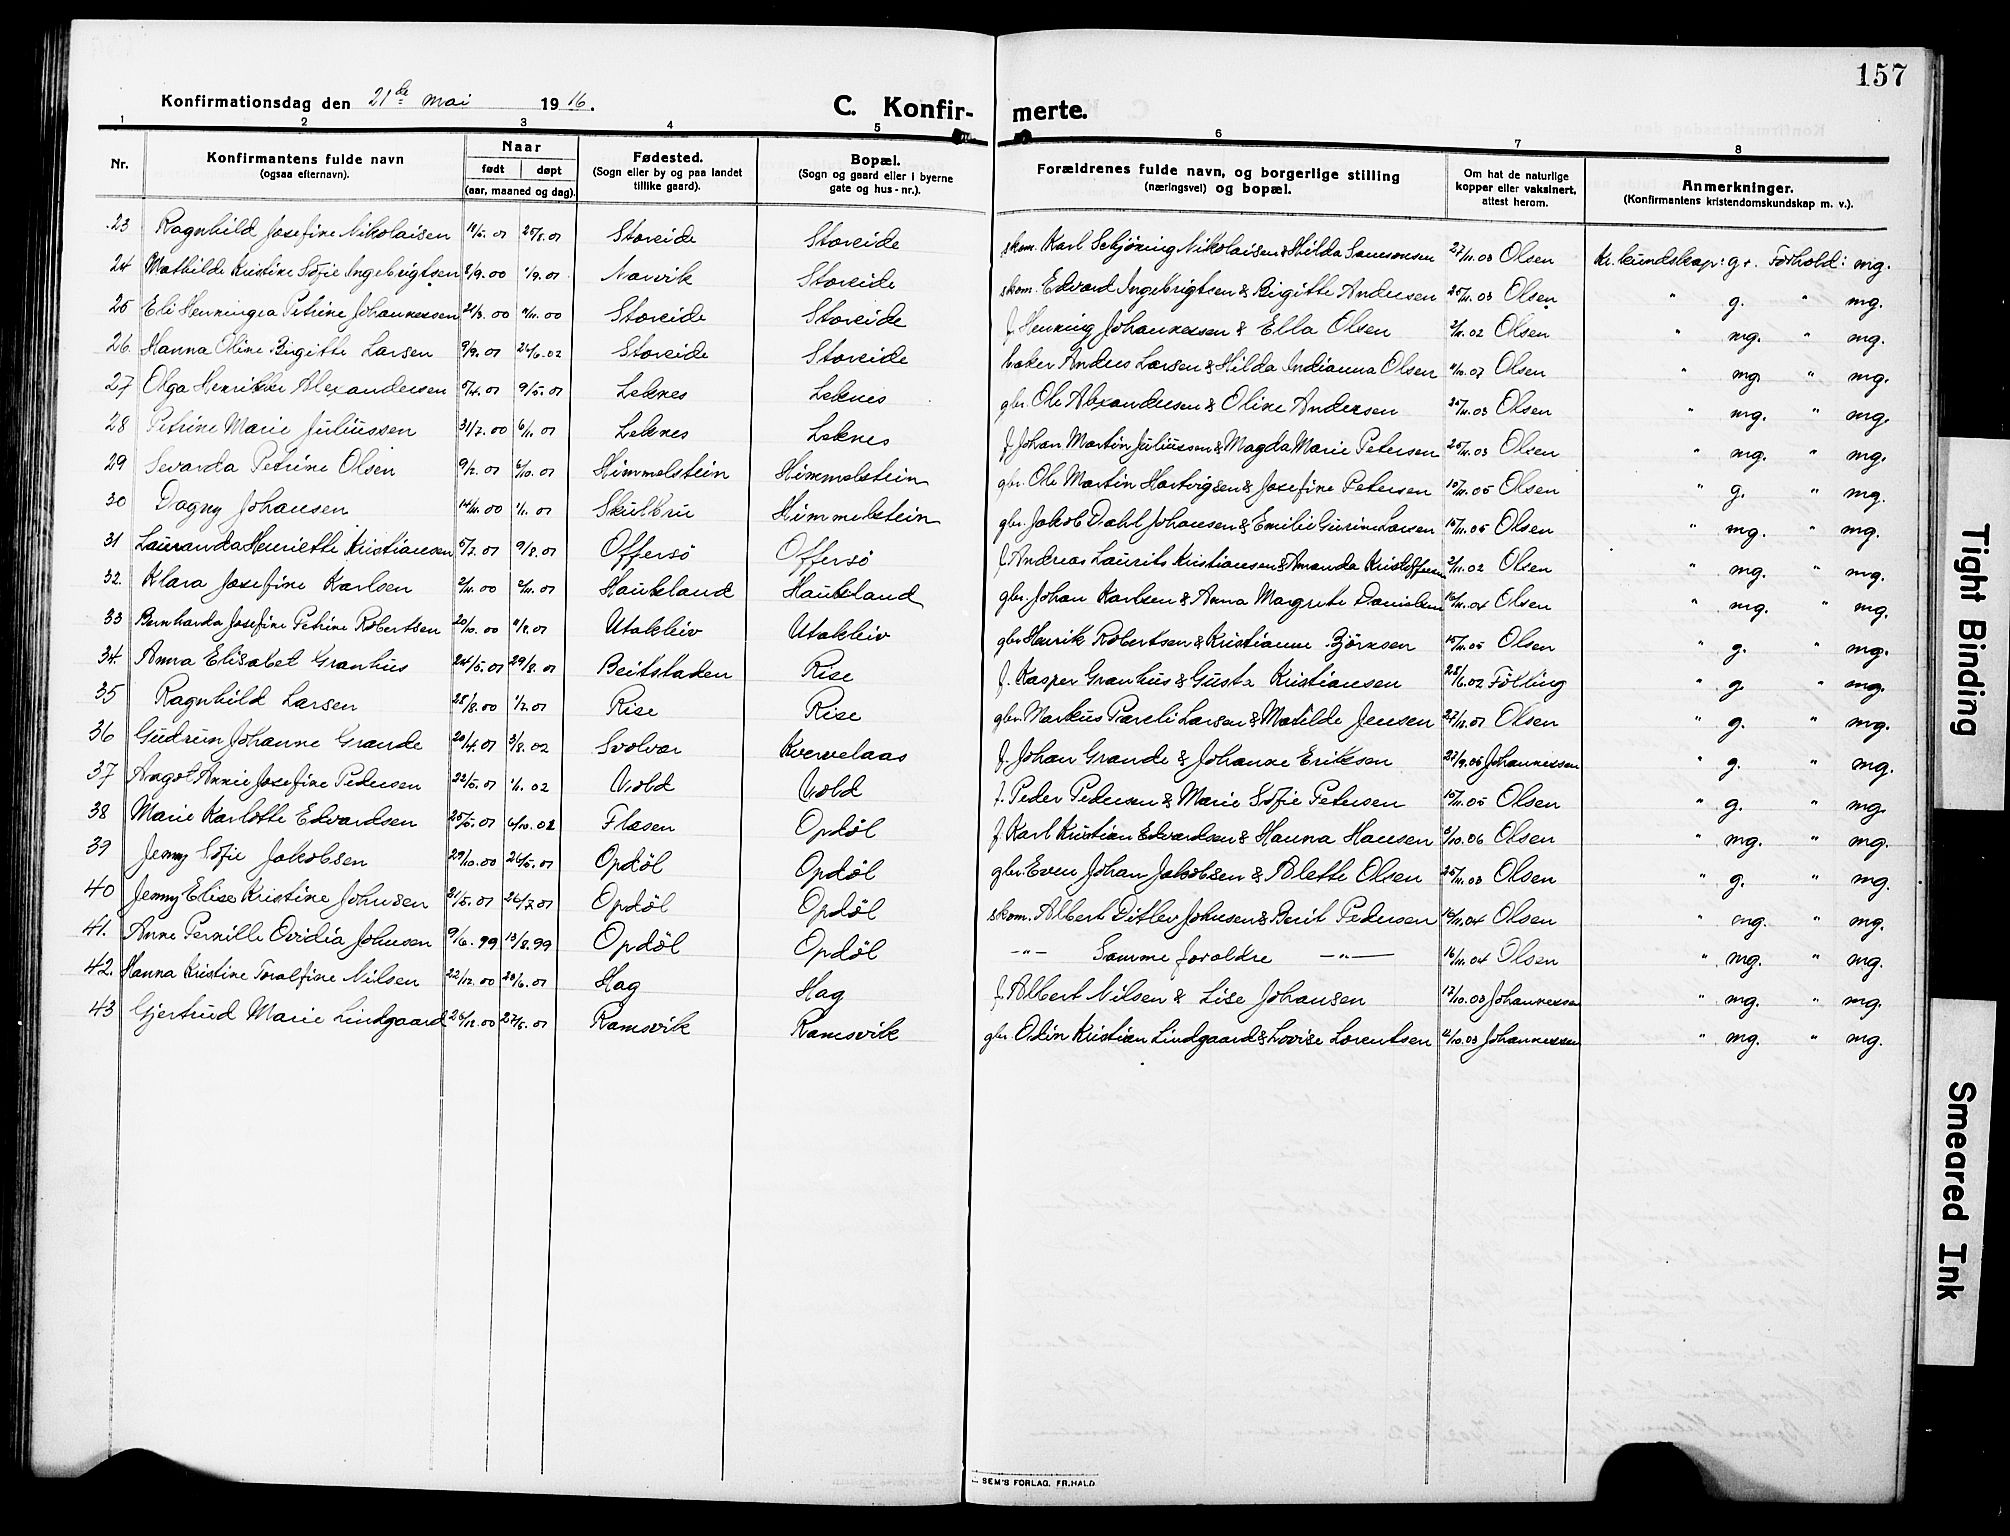 157
Konfirmationsdag den 21de mai 1916.
C. Konfir- merte.
1 2 3 4 5 6 7 8
Nr. Konfirmantens fulde navn (ogsaa efternavn). Naar født døpt (aar, maaned og dag). Fødested. (Sogn eller by og paa landet tillike gaard). Bopæl. (Sogn og gaard eller i byerne gate og hus-nr.). Forældrenes fulde navn, og borgerlige stilling (næringsvei) og bopæl. Om hat de naturlige kopper eller vaksinert, attest herom. Anmerkninger. (Konfirmantens kristendomskundskap m. v.).
23 Ragnhild Josefine Nikolaisen 25/8.01 Storeide Storeide skom. Karl Schjöning Nikolaisen & Hilda Samsonsen 27/11.03 Olsen Kr. kundskap: g+. Forhold: mg.
24 Mathilde Kristine Sofie Ingebrigtsen 1/9.01 Narvik Storeide skom. Edvard Ingebrigtsen & Birgitte Andersen 25/11.03 Olsen " g. " mg.
25 Eli Henningea Petrine Johannessen Storeide Storeide f. Henning Johannessen & Ella Olsen 2/11.02 Olsen " mg. " mg.
26 Hanna Oline Birgitte Larsen 9/9.01 24/6.02 Storeide Storeide baker Anders Larsen & Hilda Indianna Olsen Olsen " mg. " mg.
27 Olga Henrikke Alexandersen 5/4.01 9/5.01 Leknes Leknes gbr. Ole Alexandersen & Oline Andersen 25/11.03 Olsen " mg. " mg.
28 Petrine Marie Juliussen 31/7.00 6/1.01 Leknes Leknes f. Johan Martin Juliussen & Magda Marie Petersen 25/11.03 Olsen " mg. " mg.
29 Sevarda Petrine Olsen 9/2.01 6/10.01 Himmelstein Himmelstein gbr. Ole Martin Hartvigsen & Josefine Petersen 15/11.05 Olsen " g. " mg.
30 Dagny Johansen 14/11.00 1/1.01 Skulbru Himmelstein gbr. Jakob Dahl Johansen & Emilie Gurine Larsen 15/11.05 Olsen " mg. " mg.
31 Lauranda Henriette Kristiansen 5/7.01 9/8.01 Offersö Offersö f. Andreas Laurits Kristiansen & Amanda Kristoffersen 2/11.02 Olsen " mg. " mg.
32. Klara Josefine Karlsen 2/11.00 Haukeland Haukeland gbr. Johan Karlsen & Anna Margrete Danielsen 16/11.04 Olsen " mg. " mg.
33 Bernharda Josefine Petrine Robertsen 20/10.00 Utakleiv Utakleiv gbr. Henrik Robertsen & Kristianne Björnsen 15/11.05 Olsen " g. " mg.
34. Anna Elisabet Granhus 24/5.01 29/8.01 Beitstaden Rise f. Kasper Granhus & Gusta Kristiansen 28/6.02 Fölling " g. " mg.
35 Ragnhild Larsen 28/8.00 1/2.01 Rise Rise gbr. Markus Pareli Larsen & Matilde Jensen 27/11.01 Olsen " g. " mg.
36 Gudrun Johanne Grande 20/4.01 3/8.02 Svolvær Kvervelaas f. Johan Grande & Johanne Eriksen Johannessen " g. " mg.
37 Angot Annie Josefine Pedersen 22/5.01 1/1.02 Vold Vold f. Peder Pedersen & Marie Sofie Petersen 15/11.05 Olsen " g. " mg.
38 Marie Karlotte Edvardsen 25/5.01 6/10.02 Flæsen Opdöl f. Karl Kristian Edvardsen & Hanna Hansen Olsen " mg. " mg.
39 Jenny Sofie Jakobsen 29/10.00 26/5.01 Opdöl Opdöl gbr. Even Johan Jakobsen & Alette Olsen 25/11.03 Olsen " g. " mg.
40 Jenny Elise Kristine Johnsen 21/5.01 26/7.01 Opdöl Opdöl skom. Albert Ditlev Johnsen & Berit Pedersen 16/11.04 Olsen " mg. " mg.
41. Anne Pernille Ovidia Johnsen 9/6.99 13/8.99 Opdöl Opdöl —"— Samme foreldre —"— 16/11.04 Olsen " mg. " mg.
42. Hanna Kristine Toralfine Nilsen 22/12.00 Hag Hag f. Albert Nilsen & Lise Johansen 17/10.03 Johannessen " mg. " mg.
43 Gjertrud Marie Lindgaard 26/12.00 Ramsvik Ramsvik gbr. Odin Kristian Lindgaard & Lovise Lorentsen Johannessen " mg. " mg.
SEM'S FORLAG, FR.HALD
Tight Binding
Smeared Ink